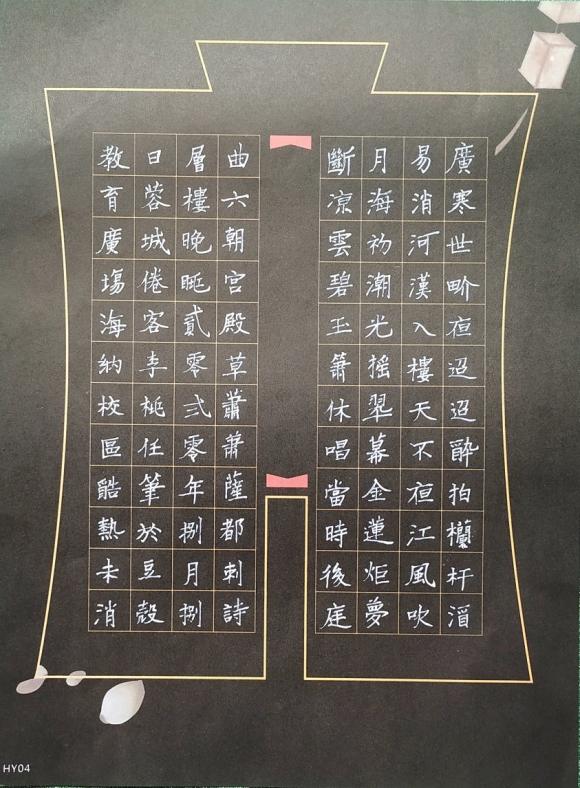 廣寒世畍夜迢迢醉拍欄杆酒
易消河漢入樓天不夜江風吹
月海初潮光摇翠幕金蓮炬夢
斷凉雲碧玉簫休唱當時後庭
曲六朝宮殿草蕭蕭薩都剌詩
層樓晚眺貳零弍零年捌月捌
日蓉城倦客李桃任筆於豆殼
教育廣塲海納校區酷熱未消
HY04